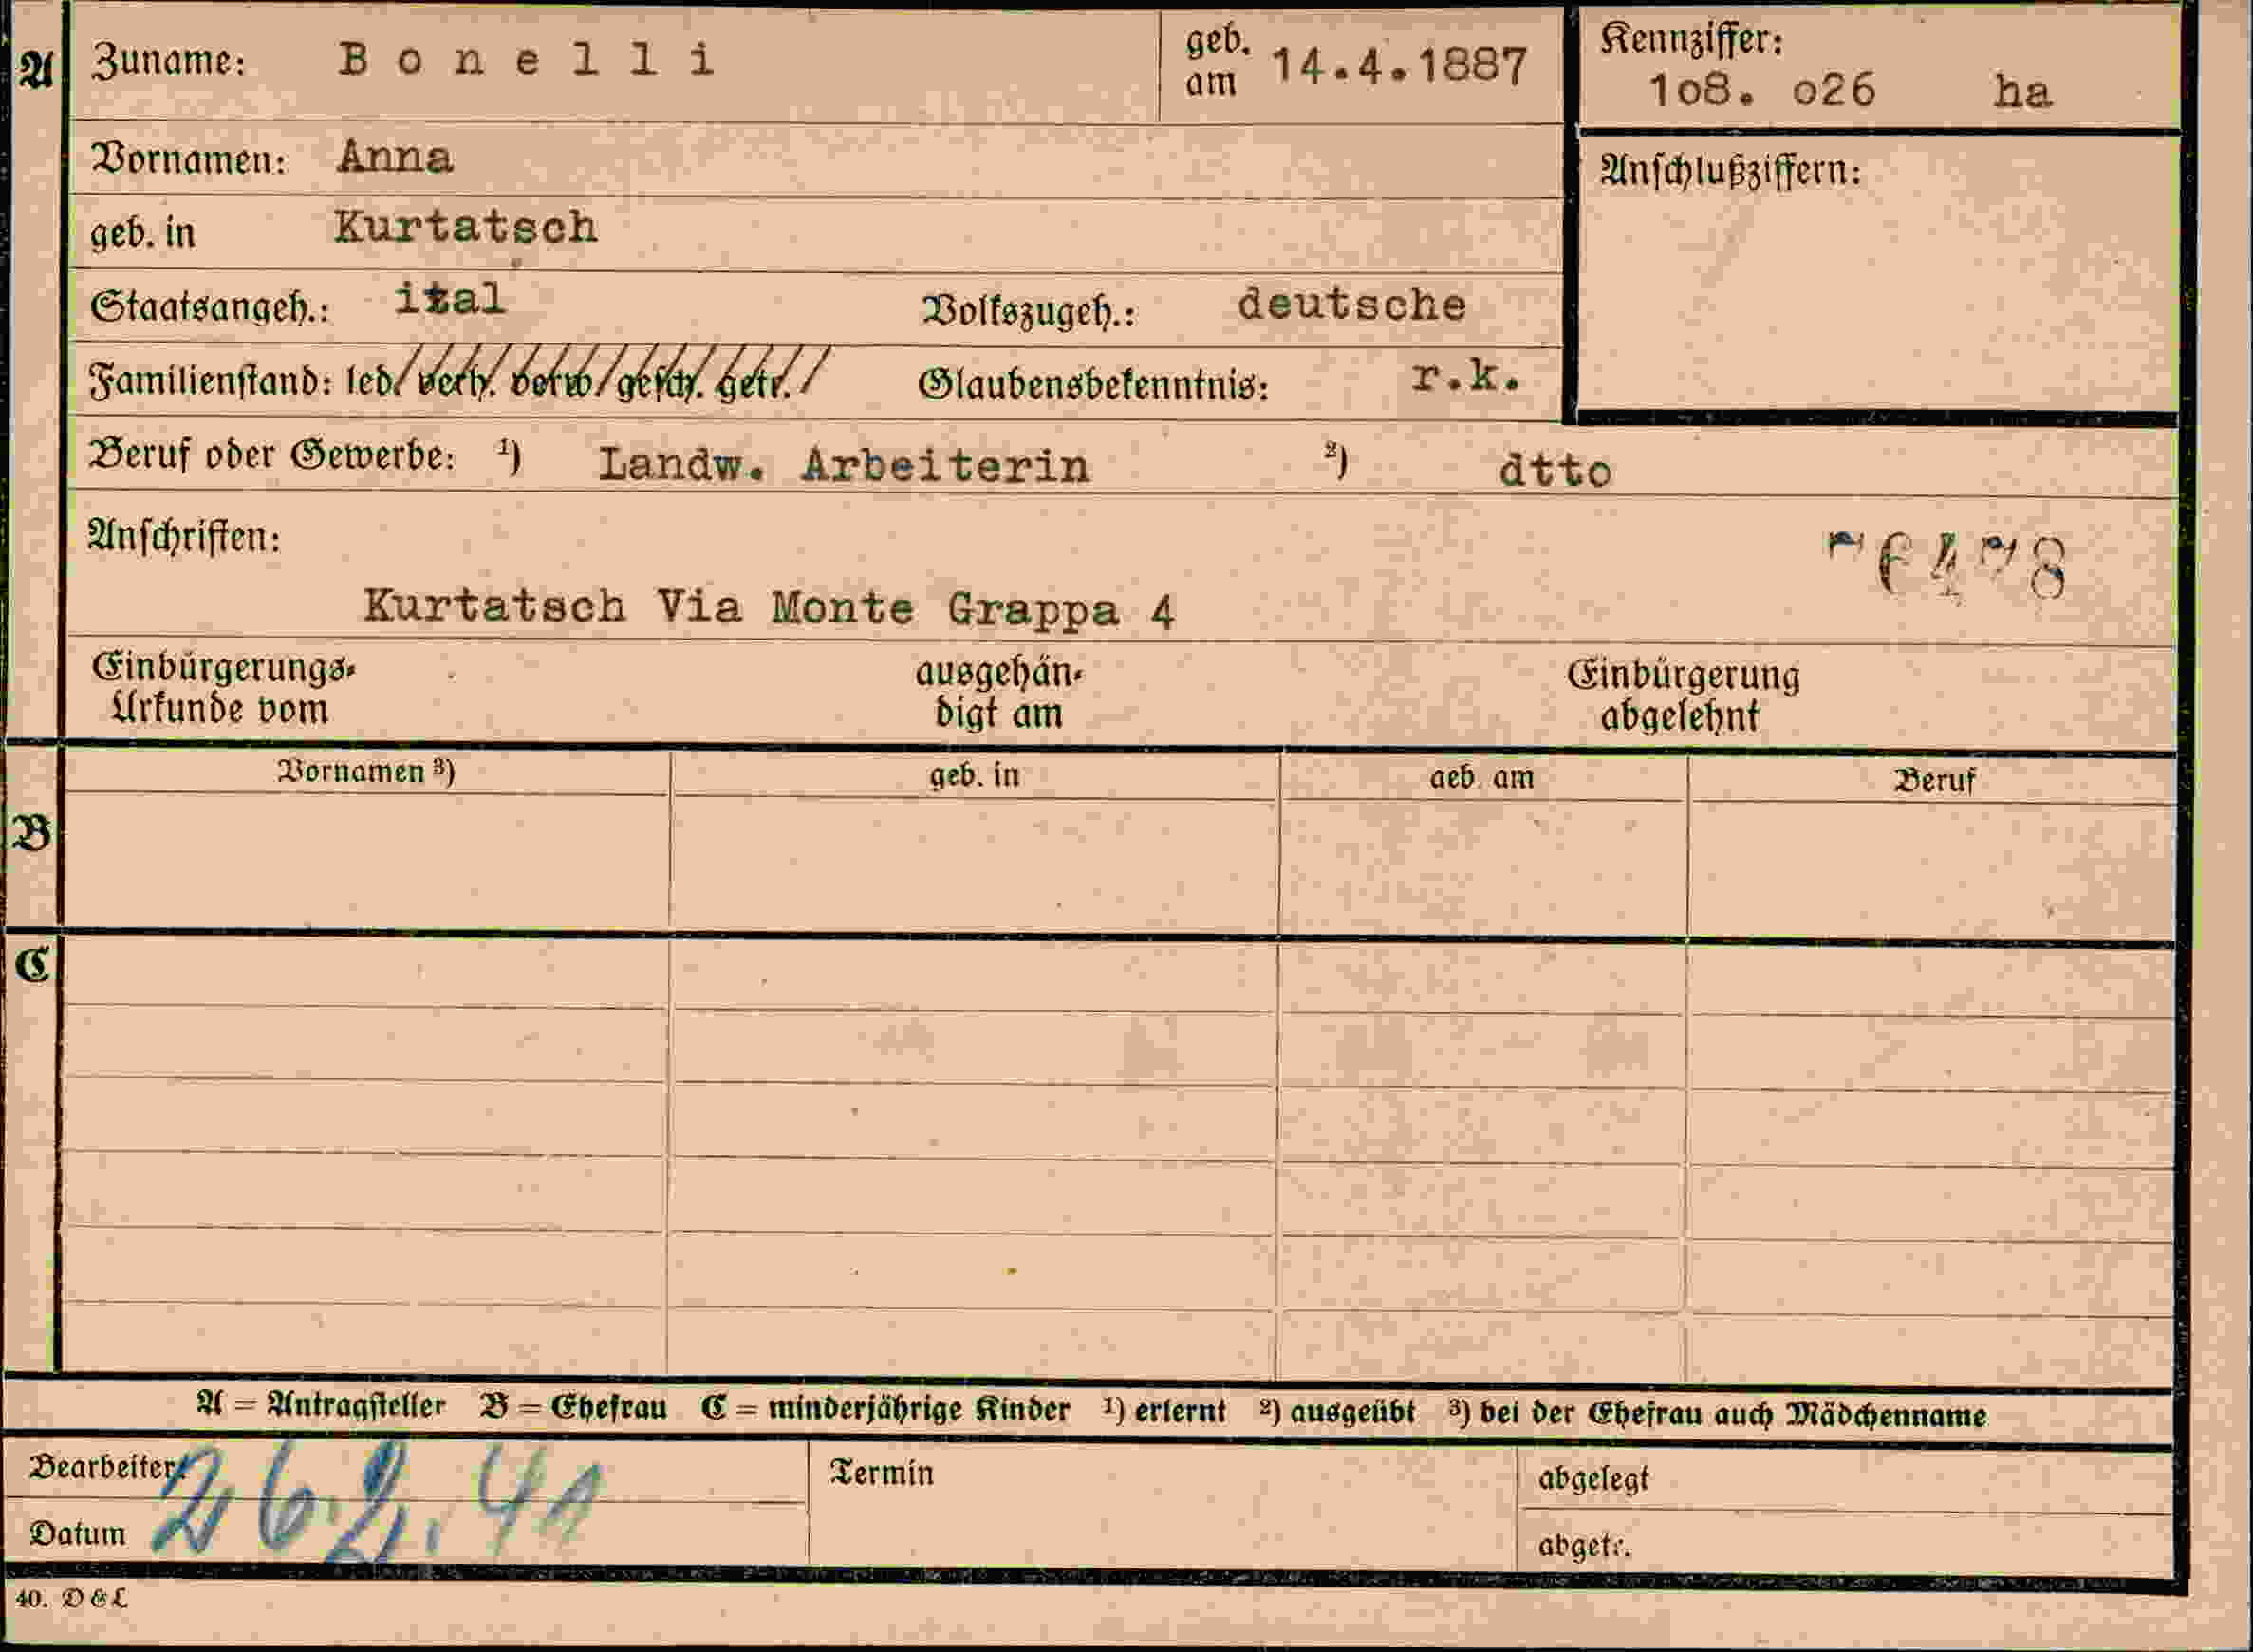 A Zuname: B o n e l l i geb. am 14.4.1887
Kennziffer:
1o8. o26 ha
Vornamen: Anna
Anschlußziffern:
geb. in Kurtatsch
Staatsangeh.: ital Volkszugeh.: deutsche
Familienstand: led. verh. verw. gesch. getr. Glaubensbekenntnis: r.k.
Beruf oder Gewerbe: ¹) Landw. Arbeiterin ²) dtto
Anschriften:
Kurtatsch Via Monte Grappa 4
Einbürgerungs- ausgehän- Einbürgerung
Urkunde vom digt am abgelehnt
Vornamen ³) geb. in geb. am Beruf
B
C
A = Antragsteller B = Ehefrau C = minderjährige Kinder ¹) erlernt ²) ausgeübt ³) bei der Ehefrau auch Mädchenname
Bearbeiter: Termin abgelegt
Datum 26.2.41 abgetr.
40. D & L